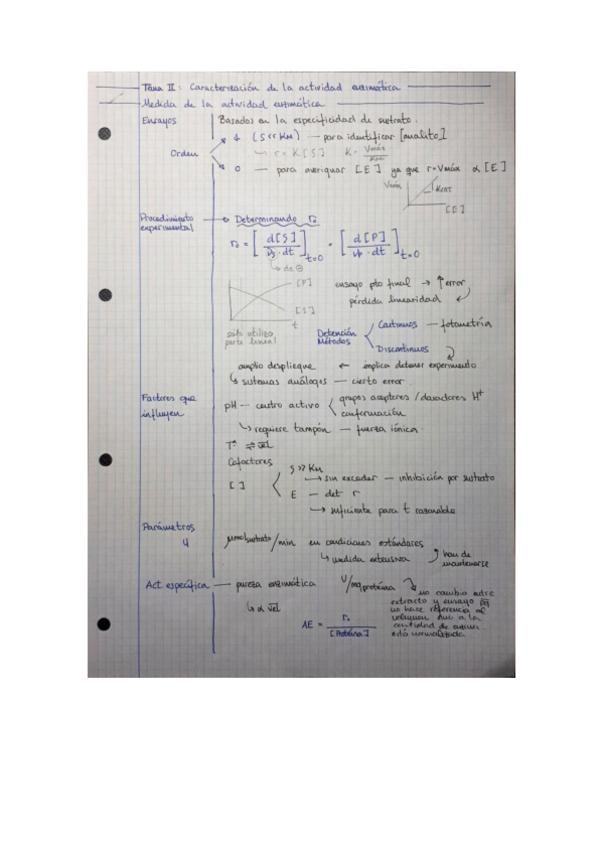 Tema II: Caracterización de la actividad enzimática
Medida de la actividad enzimática
Ensayos Basados en la especificidad de sustrato.
Orden 1 (S<<KM) — para identificar [analito]
r = K[S] K = Vmáx/KM
0 — para averiguar [E] ya que r=Vmáx α [E]
Vmáx Kcat
[E]
Procedimiento experimental → Determinando r₀
r₀ = [d[S]/νs·dt]t=0 = [d[P]/νp·dt]t=0
da ⊖
[P]
[S]
t
solo utilizo parte lineal
ensayo pto final → ↑ error
pérdida linealidad
Detención Métodos
Continuos — fotometría
Discontinuos
amplio despliegue ← implica detener experimento
sistemas análogos — cierto error
Factores que influyen
pH — centro activo
grupos aceptores / donadores H⁺
conformación
requiere tampón — fuerza iónica
Tª ⇌ vel
Cofactores
[ ]
S >> KM
sin exceder — inhibición por sustrato
E — det r
suficiente para t razonable
Parámetros
U μmol sustrato/min en condiciones estándares
medida extensiva
han de mantenerse
Act específica — pureza enzimática U/mg proteína
α vel
AE = r₀/[Proteína]
no cambia entre
extracto y ensayo
no hace referencia al
volumen sino a la
cantidad de
está normalizada.